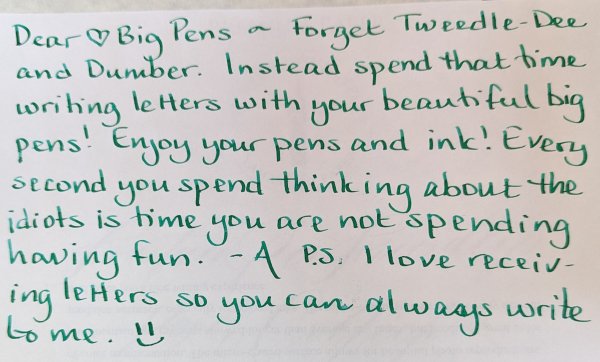 Dear ♡ Big Pens ~ Forget Tweedle-Dee
and Dumber. Instead spend that time
writing letters with your beautiful big
pens! Enjoy your pens and ink! Every
second you spend thinking about the
idiots is time you are not spending
having fun. - A P.S. I love receiv-
ing letters so you can always write
to me. :)